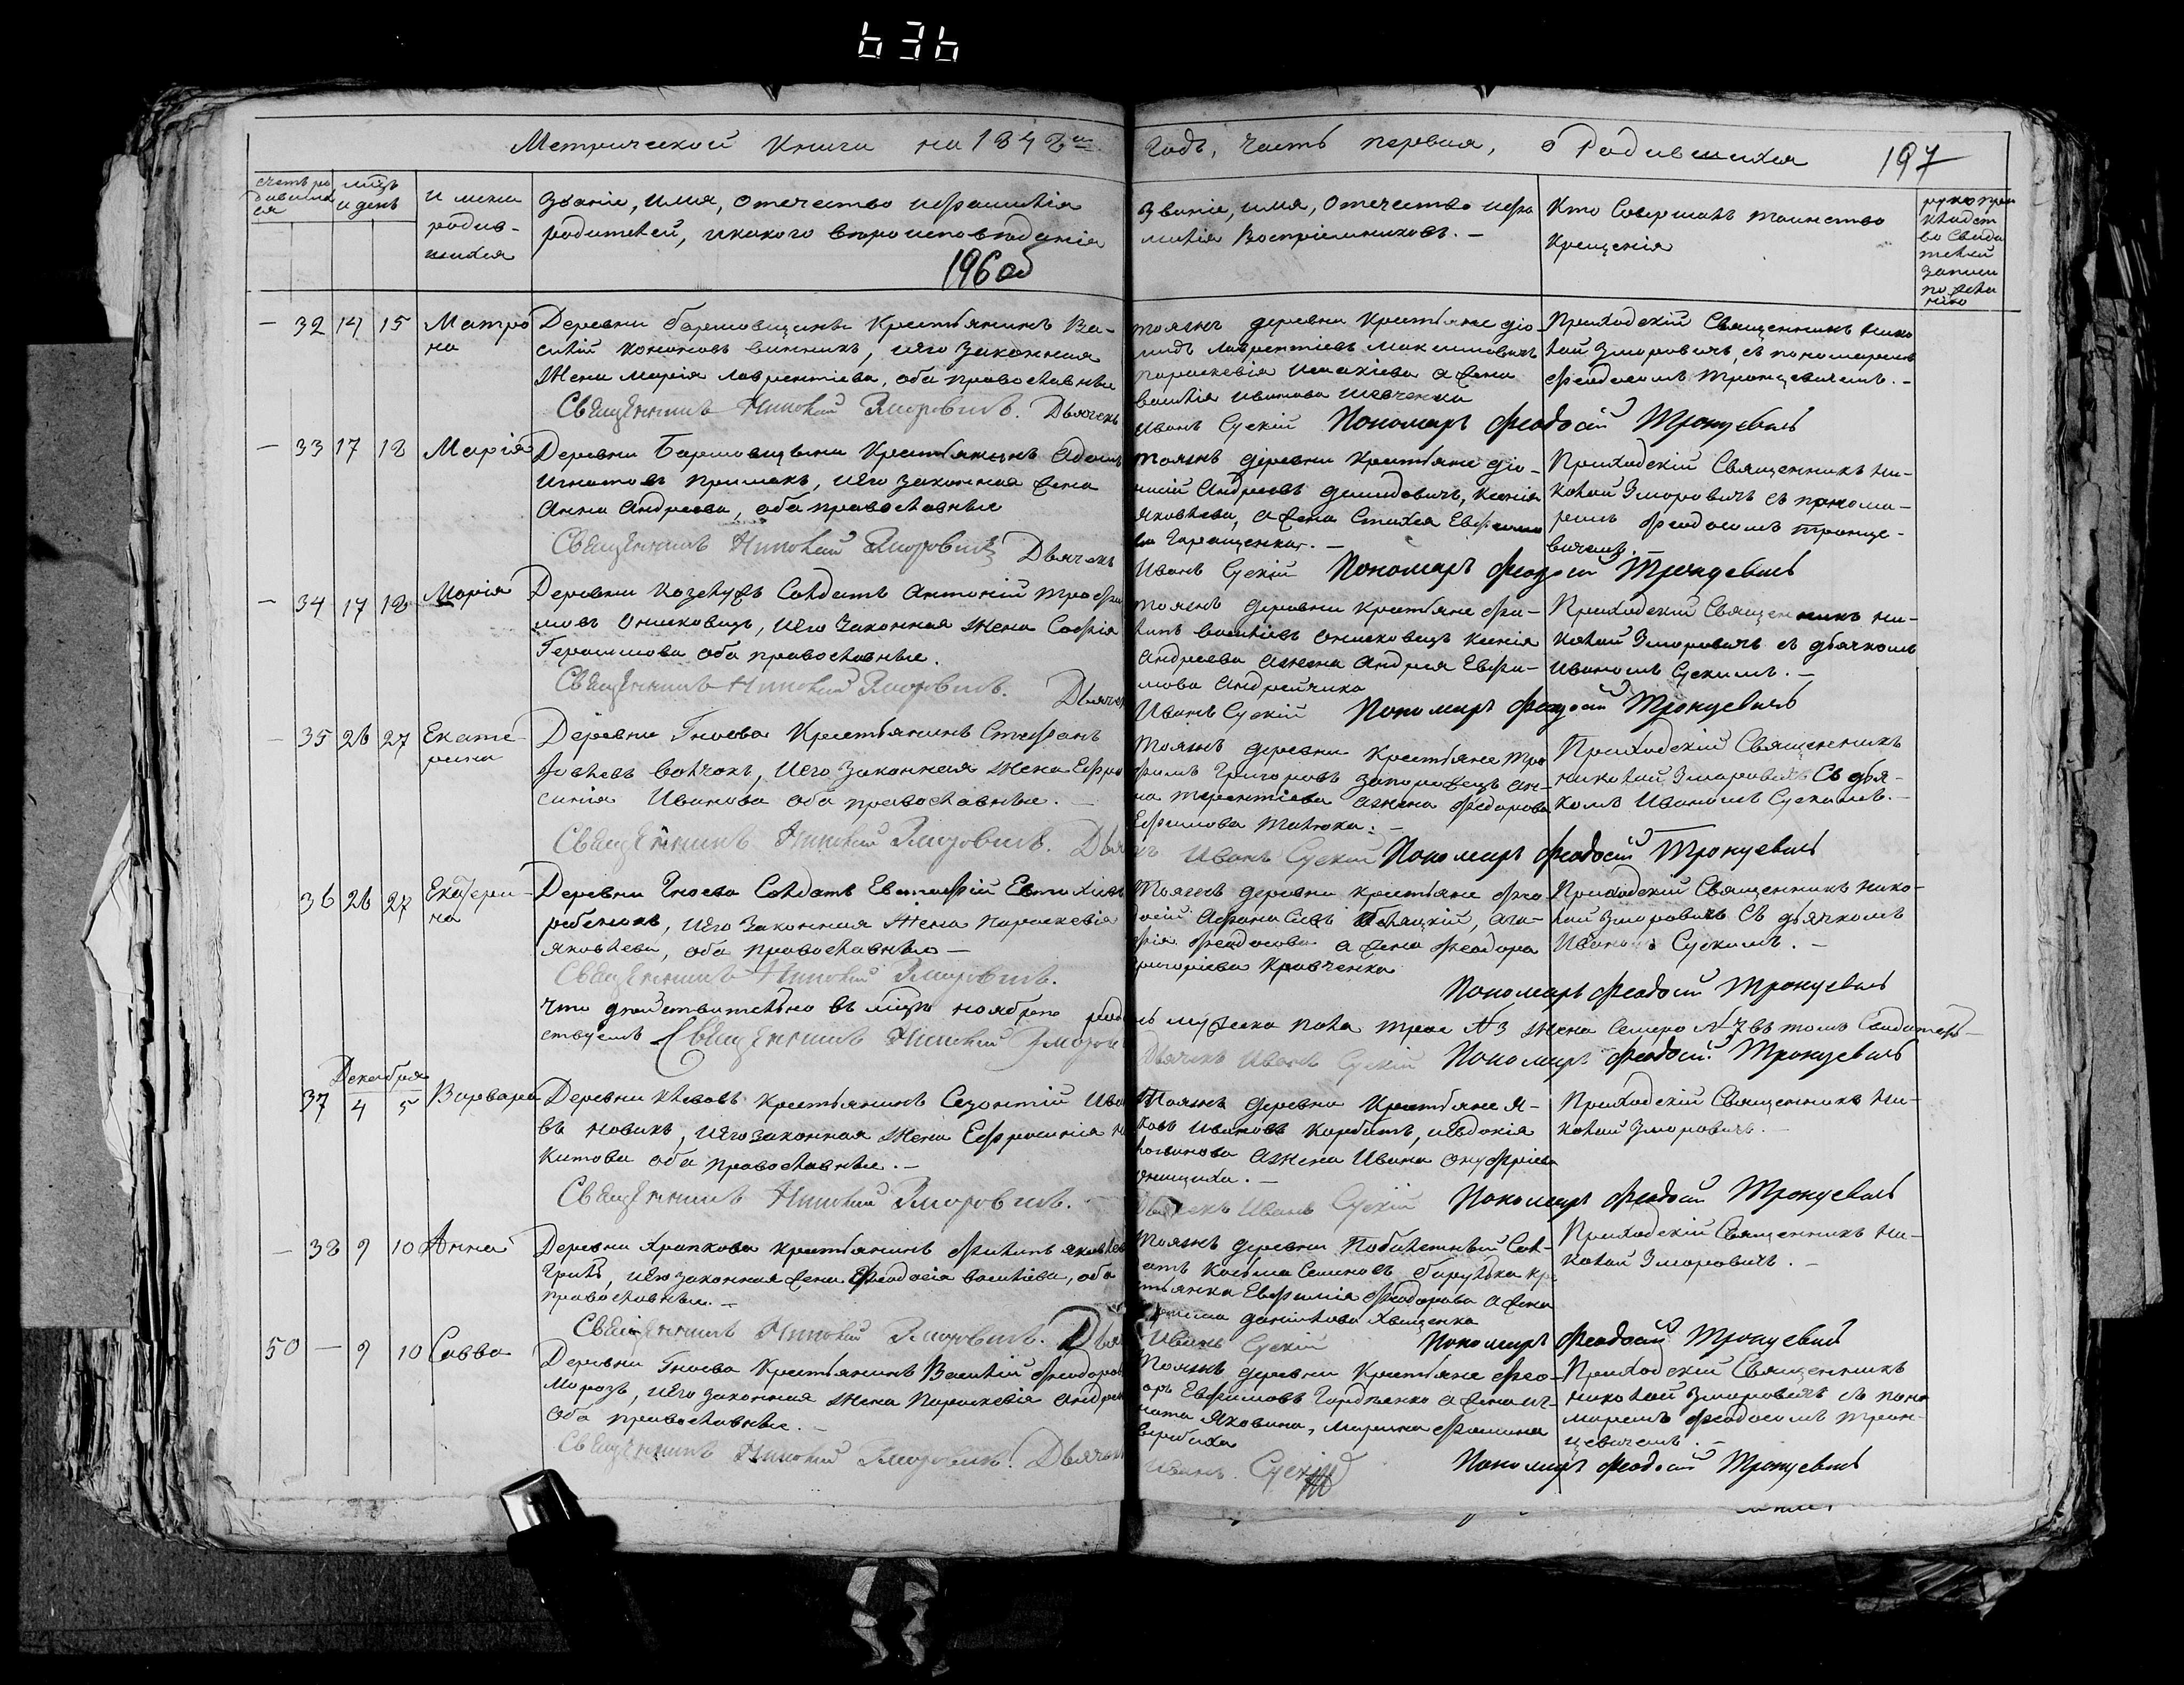 636
Метрической Книги на 1848й
Годъ, Часть первая, о Родившихся 197
счетъ родившихся
мцъ и день
имена
родив-
шихся
Званіе, имя, отечество и фамилія
родителей, и какого вероисповеданія
196об
Званіе, имя, отечество и фа-
милія Воспріемниковъ. —
Кто Совершалъ таинство
Крещенія
рукопри
кладст
во Свиде
телей
записи
по жела
нію
— 32 14 15 Матро
на
Деревни Крестьянинъ Ва-
силій Кононовъ винникъ, и его Законная
Жена Марія Лаврентіева, оба православные
Священникъ Николай Зморовичъ. Дьячекъ
тояжъ деревни Крестьяне діо-
мидъ Лаврентіевъ Максимовичъ
параскевія Исакіева а жена
василія иванова шевченка
Иванъ Сускій Пономарь Феодосій Тронцевичъ
Приходскій Священникъ Нико
лай Зморовичъ, съ пономаремъ
Феодосіемъ Тронцевичемъ. —
— 33 17 18 Марія
Деревни Крестьянинъ Адамъ
Игнатовъ примакъ, и его законная жена
Анна Андреева, оба православные
Священникъ Николай Зморовичъ Дьячекъ
тояжъ деревни Крестьяне діо-
нисій Андреевъ демидовичъ, Ксенія
Яковлева, а жена Стахея Ефимо
ва Геращенка. —
Иванъ Сускій Пономарь Феодосій Тронцевичъ
Приходскій Священникъ Ни-
колай Зморовичъ съ понома-
ремъ Феодосіемъ Тронце-
вичемъ. —
— 34 17 18 Марія
Деревни Солдатъ Антоній Трофи
мовъ Онисковецъ, и его Законная Жена Софія
Герасимова оба православные.
Священникъ Николай Зморовичъ. Дьячекъ
тояжъ деревни крестьяне фи-
липъ василіевъ онисковецъ Ксенія
Андреева а жена Андрея Евфи-
мова Андрейчика
Иванъ Сускій Пономарь Феодосій Тронцевичъ
Приходскій Священникъ Ни-
колай Зморовичъ съ дьячкомъ
Иваномъ Сускимъ. —
— 35 26 27 Екате-
рина
Деревни Гноева Крестьянинъ Стефанъ
Волчокъ, и его Законная Жена Ефро
синія Иванова оба православные. —
Священникъ Николай Зморовичъ. Дья
тояжъ деревни Крестьяне Тро
фимъ Григоровъ запорожецъ ан-
на терентіева а жена Федорова
Ефимова
къ Иванъ Сускій Пономарь Феодосій Тронцевичъ
Приходскій Священникъ
Николай Зморовичъ Съ дья-
комъ Иваномъ Сускимъ. —
36 26 27 Екатери-
на
Деревни Гноева Солдатъ Евстафій Евтихіевъ
ребенокъ, и его Законная Жена Параскевія
Яковлева, оба православные —
Священникъ Николай Зморовичъ.
Тояжъ деревни крестьяне Фео
досій Афанасіевъ Ага-
фія Феодосова а жена Феодора
григоріева Кравченка
Пономарь Феодосій Тронцевичъ
Приходскій Священникъ Нико-
лай Зморовичъ Съ дьячкомъ
Иваномъ Сускимъ. —
Что действительно въ мцѣ ноябре родилось мужеска пола трое №3 Жена Семеро №7 въ томъ Свидетель-
ствуемъ Священникъ Николай Зморовичъ Дьячекъ Иванъ Сускій Пономарь Феодосій Тронцевичъ
Декабря
37 4 5 Варвара
Деревни Крестьянинъ Созонтій Ива
въ Новикъ, и его законная Жена Ефросинія Ни
китова оба православные. —
Священникъ Николай Зморовичъ. —
Тояжъ деревни Крестьяне Я-
ковъ Ивановъ и Евдокія
а жена Ивана Онуфріева
Дьячекъ Иванъ Сускій Пономарь Феодосій Тронцевичъ
Приходскій Священникъ Ни-
колай Зморовичъ. —
— 38 9 10 Анна
Деревни Храпкова крестьянинъ Филипъ Яковлевъ
Грицъ, и его законная жена Феодосія василіева, оба
православные. —
Священникъ Николай Зморовичъ. Дья
тояжъ деревни Побилетный Сол-
датъ Косьма Семеновъ кре
стьянка Евфимія Феодорова а жена
данилова Хващенка
Иванъ Сускій Пономарь Феодосій Тронцевичъ
Приходскій Священникъ Ни-
колай Зморовичъ. —
50 — 9 10 Савва
Деревни Гноева Крестьянинъ Василій Феодоровъ
Морозъ, и его законная Жена Параскевія Андреева
оба православные. —
Священникъ Николай Зморовичъ. Дьячекъ
Тояжъ деревни Крестьяне Фео-
доръ Евфимовъ Гордіенко а жена иг-
ната Яковина, Марина Фомина
Иванъ Сускій Пономарь Феодосій Тронцевичъ
Приходскій Священникъ
Николай Зморовичъ съ поно
маремъ Феодосіемъ Трон-
цевичемъ. —